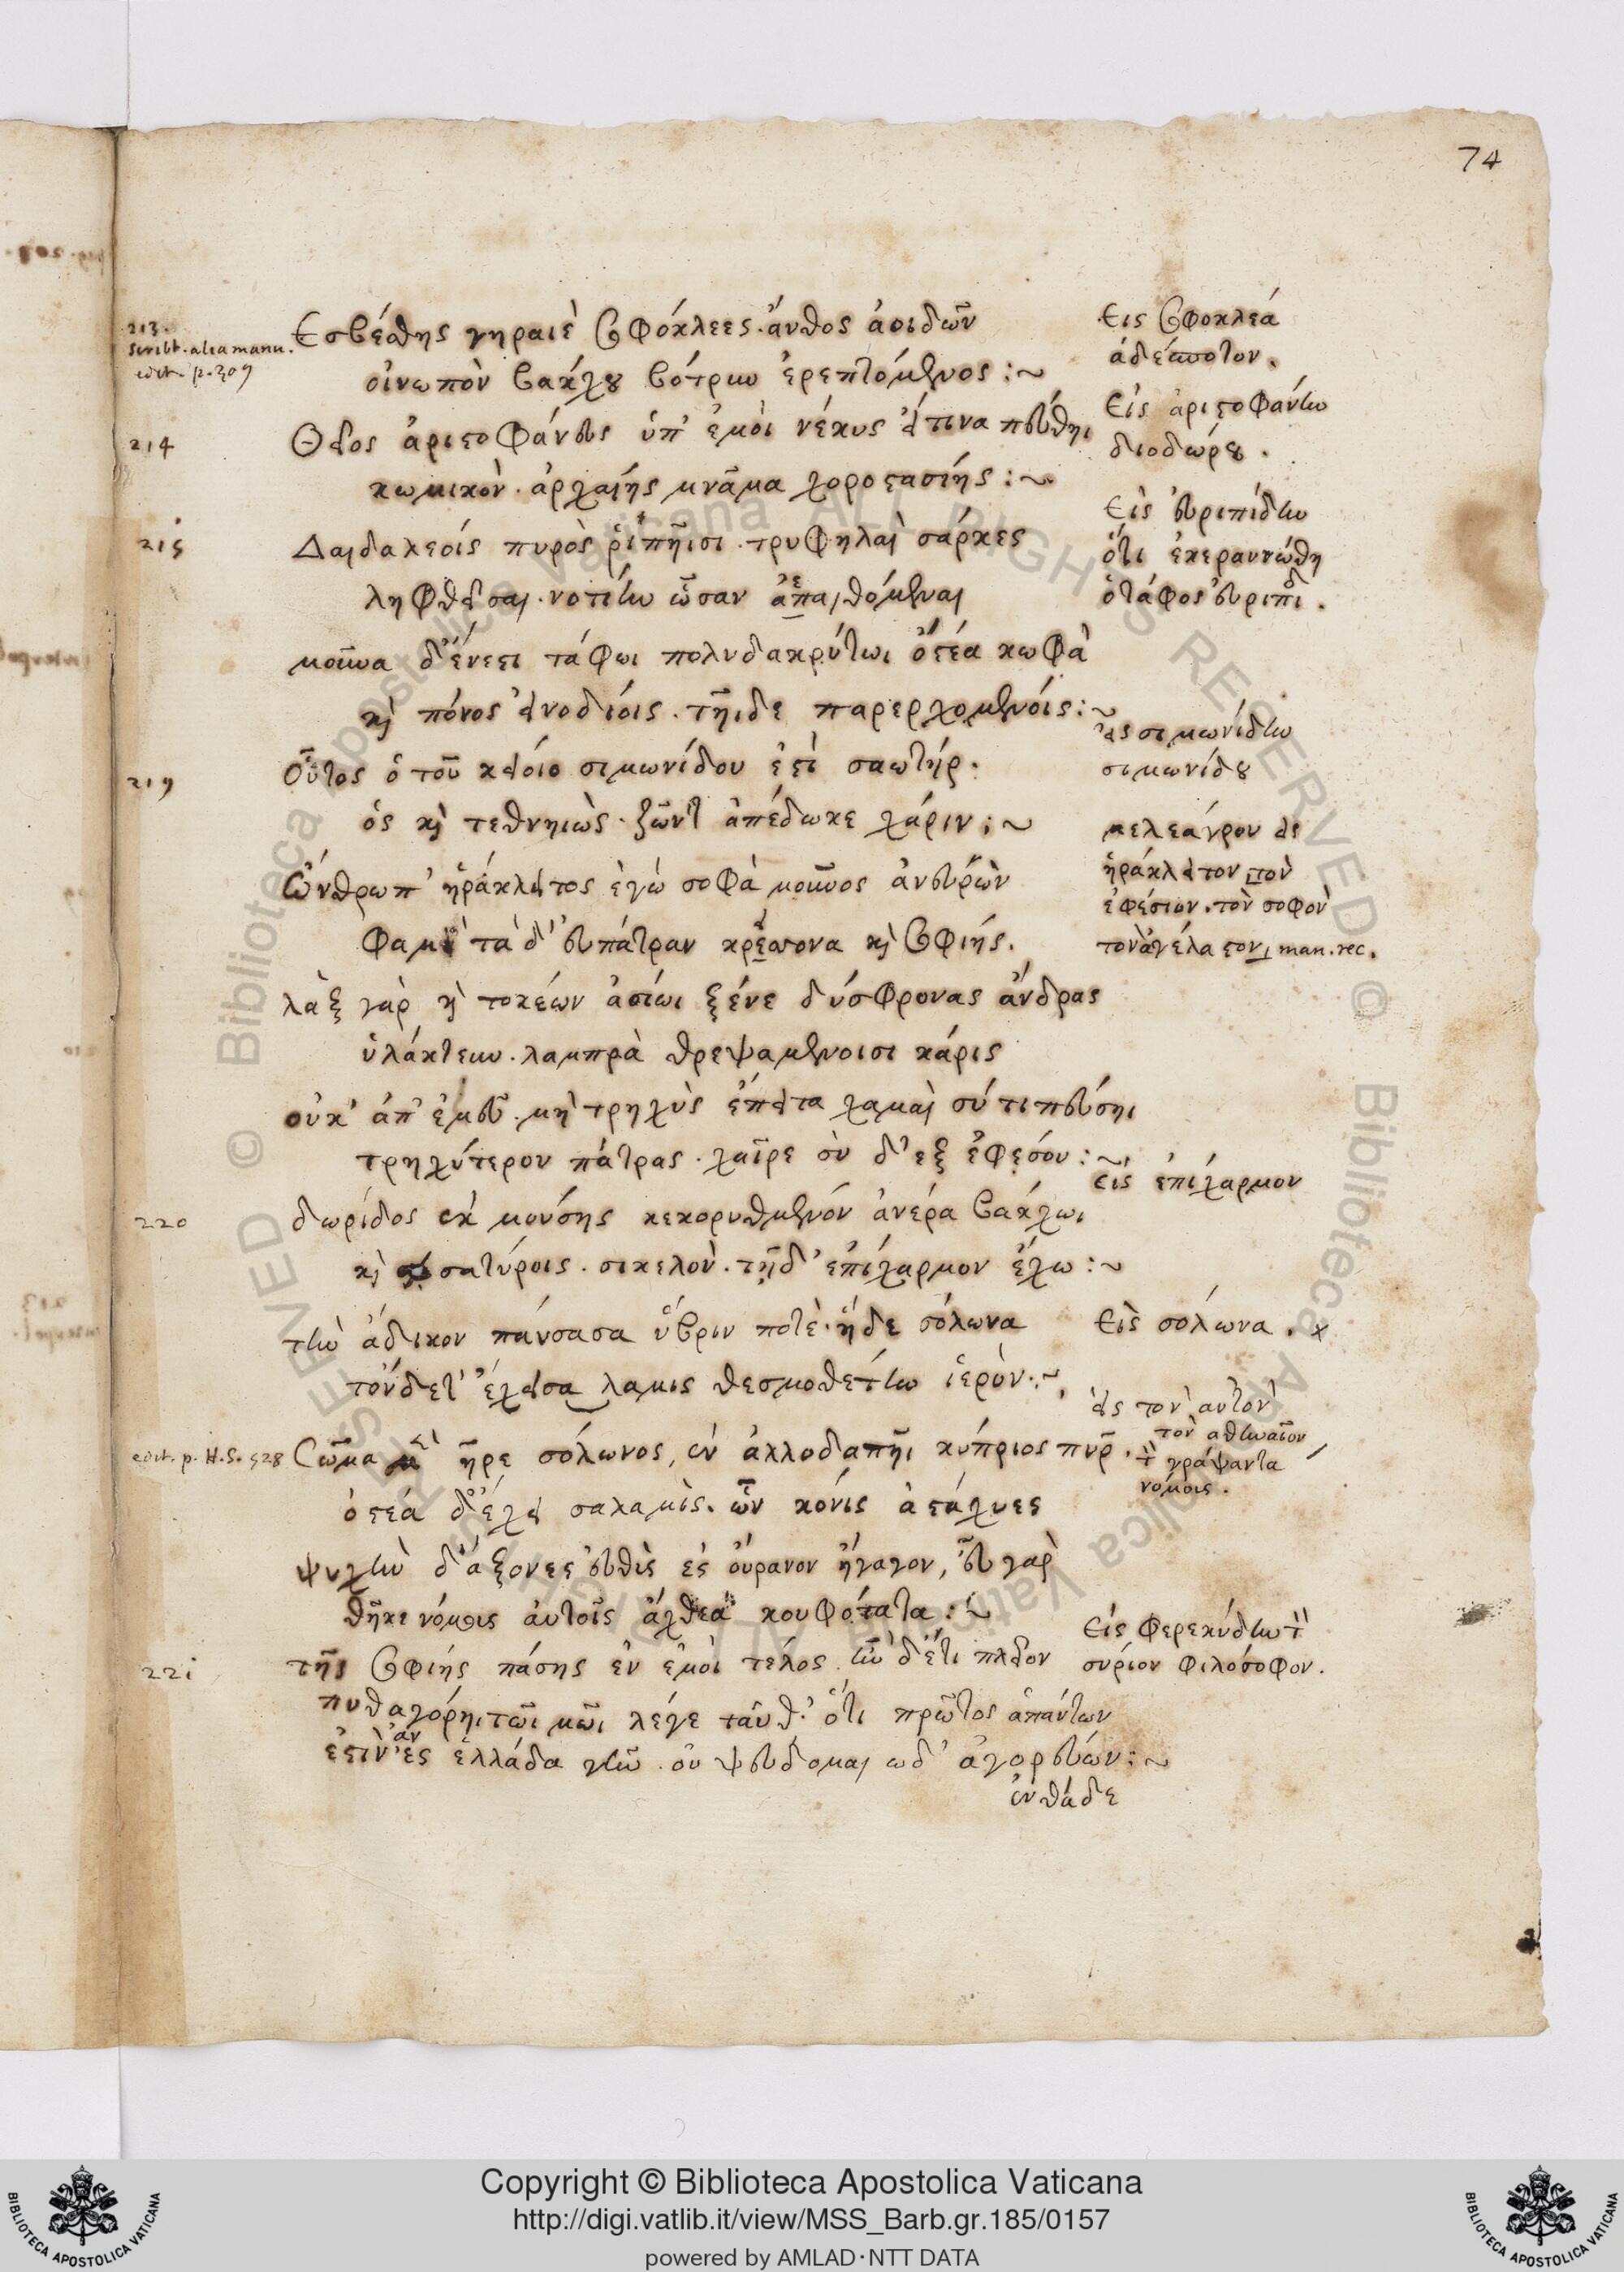 74
213.
scribt. alia manu.
edit. p. 309
Ἐσβέσθης γηραιὲ Σοφόκλεες. ἄνθος ἀοιδῶν
οἰνωπὸν βάκχου βότρυν ἐρεπτόμενος :~
Εἰς Σοφοκλέα
ἀδέσποτον.
214
Θεῖος ἀριστοφάνευς ὑπ' ἐμοὶ νέκυς εἴ τινα πεύθηι
κωμικὸν. ἀρχαίης μνᾶμα χοροστασίης :~
Εἰς ἀριστοφάνην
διοδώρου.
215
Δαιδαλεοίς πυρὸς ῥιπῆισι. τρυφηλαὶ σάρκες
ληφθεῖσαι. νοτίην ὦσαν ἀπαιθόμεναι
μοῦνα δ' ἔνεστι τάφωι πολυδακρύτωι ὀστέα κωφὰ
καὶ πόνος εἰνοδίοις. τῆιδε παρερχομενοίς :~
Εἰς εὐριπίδην
ὅτι ἐκεραυνώθη
ὁ τάφος εὐριπίδ.
219
Οὗτος ὁ τοῦ κείοιο σιμωνίδου ἐστὶ σαωτήρ.
ὃς καὶ τεθνηιὼς. ζῶντι ἀπέδωκε χάριν :~
εἰς σιμωνίδην
σιμωνίδου
Ὤνθρωπ' ἡράκλειτος ἐγὼ σοφὰ μοῦνος ἀνευρὼν
φαμὶ τὰ δ' ἐυπάτραν κρέσσονα καὶ Σοφιής.
λὰξ γὰρ καὶ τοκέων ἀσίωι ξένε δύσφρονας ἄνδρας
ὑλάκτευν. λαμπρὰ θρεψαμενοισι κάρις
οὐκ' ἀπ' ἐμεῦ. μὴ τρηχὺς ἔπειτα χαμαὶ σύ τι πεύσηι
τρηχύτερον πάτρας. χαῖρε σὺ δ' εξ ἐφεσόυ :~
μελεάγρου εἰς
ἡράκλειτον τὸν
ἐφέσιον. τὸν σοφὸν
τὸν ἀγέλαστον, man. rec.
220
δωρίδος ἐκ μούσης κεκορυθμενόν ἀνέρα βάκχωι
καὶ σατύροις. σικελὸν. τῆδ' ἐπίχαρμον ἔχω :~
εἰς ἐπίχαρμον
τὴν ἀδικον πάυσασα ὕβριν ποτὲ. ἥδε σόλωνα
τόνδετ' ἔχεισα λαμις θεσμοθέτην ἱερὸν :~
Εἰς σόλωνα. x
edit. p. H. S. 528
Σῶμα μὲν ἦρε σόλωνος, ἐν ἀλλοδαπῆι κύπριος πῦρ.
ὀστεά δ' ἔχει σαλαμὶς. ὧν κόνις ἀστάχυες
ψυχὴν δ' ἄξονες ἐυθὺς ἐς ὀυρανον ἤγαγον, ἐῦ γαρ
θῆκε νόμοις ἀυτοῖς ἄχθεα κουφότατα :~
εἰς τον αὐτὸν
τὸν αθηναῖον
τ γράψαντα
νόμοις.
221
τῆς Σοφιής πάσης ἐν ἐμοὶ τέλος. ἢν δ' ἔτι πλεῖον
πυθαγόρηι τῶι μῶι λέγε ταῦθ' ὅτι πρῶτος ἁπάντων
ἐστὶν ἀν' ἐς ἑλλάδα γῆν. οὐ ψεύδομαι ωδ' ἀγορεύων :~
ἐνθάδε
Εἰς φερεκύδην τ
σύριον φιλόσοφον.
Copyright © Biblioteca Apostolica Vaticana
http://digi.vatlib.it/view/MSS_Barb.gr.185/0157
powered by AMLAD·NTT DATA